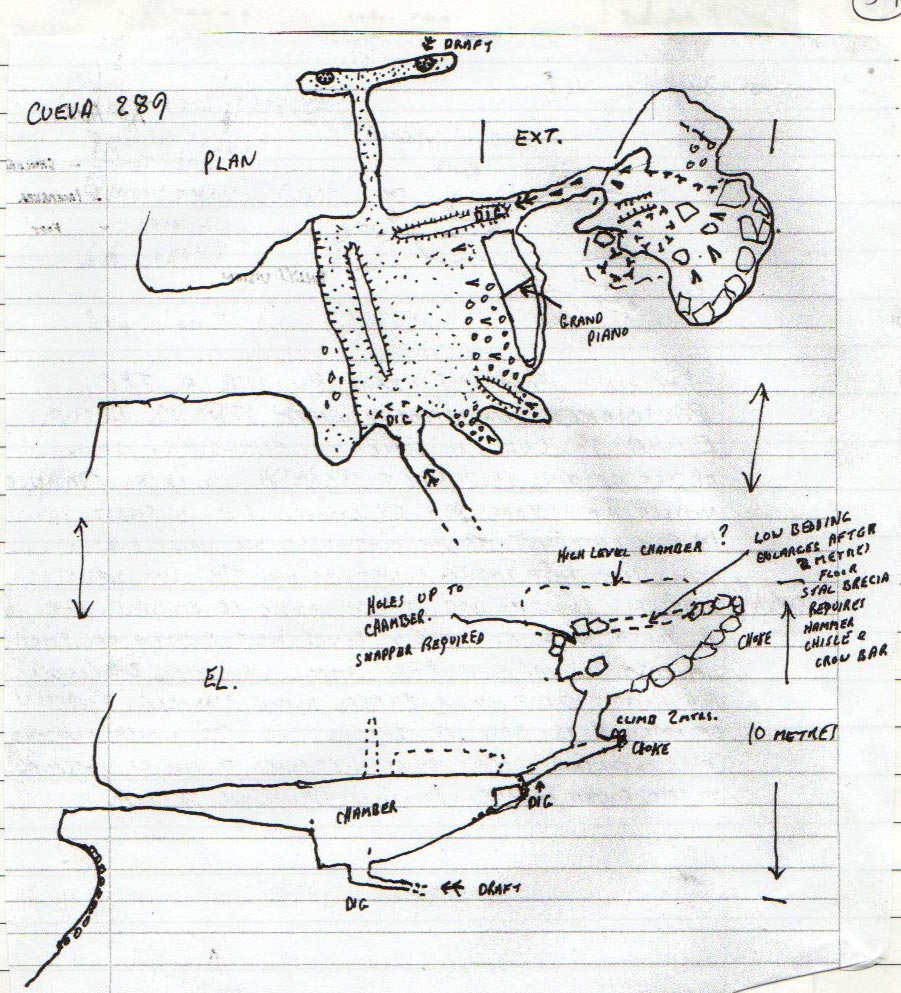 DRAFT
CUEVA 289
PLAN
EXT.
DIG
GRAND
PIANO
DIG
HIGH LEVEL CHAMBER ?
LOW BEDDING
ENLARGES AFTER
2 METRES
FLOOR
STAL BRECIA
REQUIRES
HAMMER
CHISLE &
CROW BAR
HOLES UP TO
CHAMBER.
SNAPPER REQUIRED
CHOKE
EL.
CLIMB 2 MTRS.
CHOKE
10 METRES
CHAMBER
DIG
DRAFT
DIG